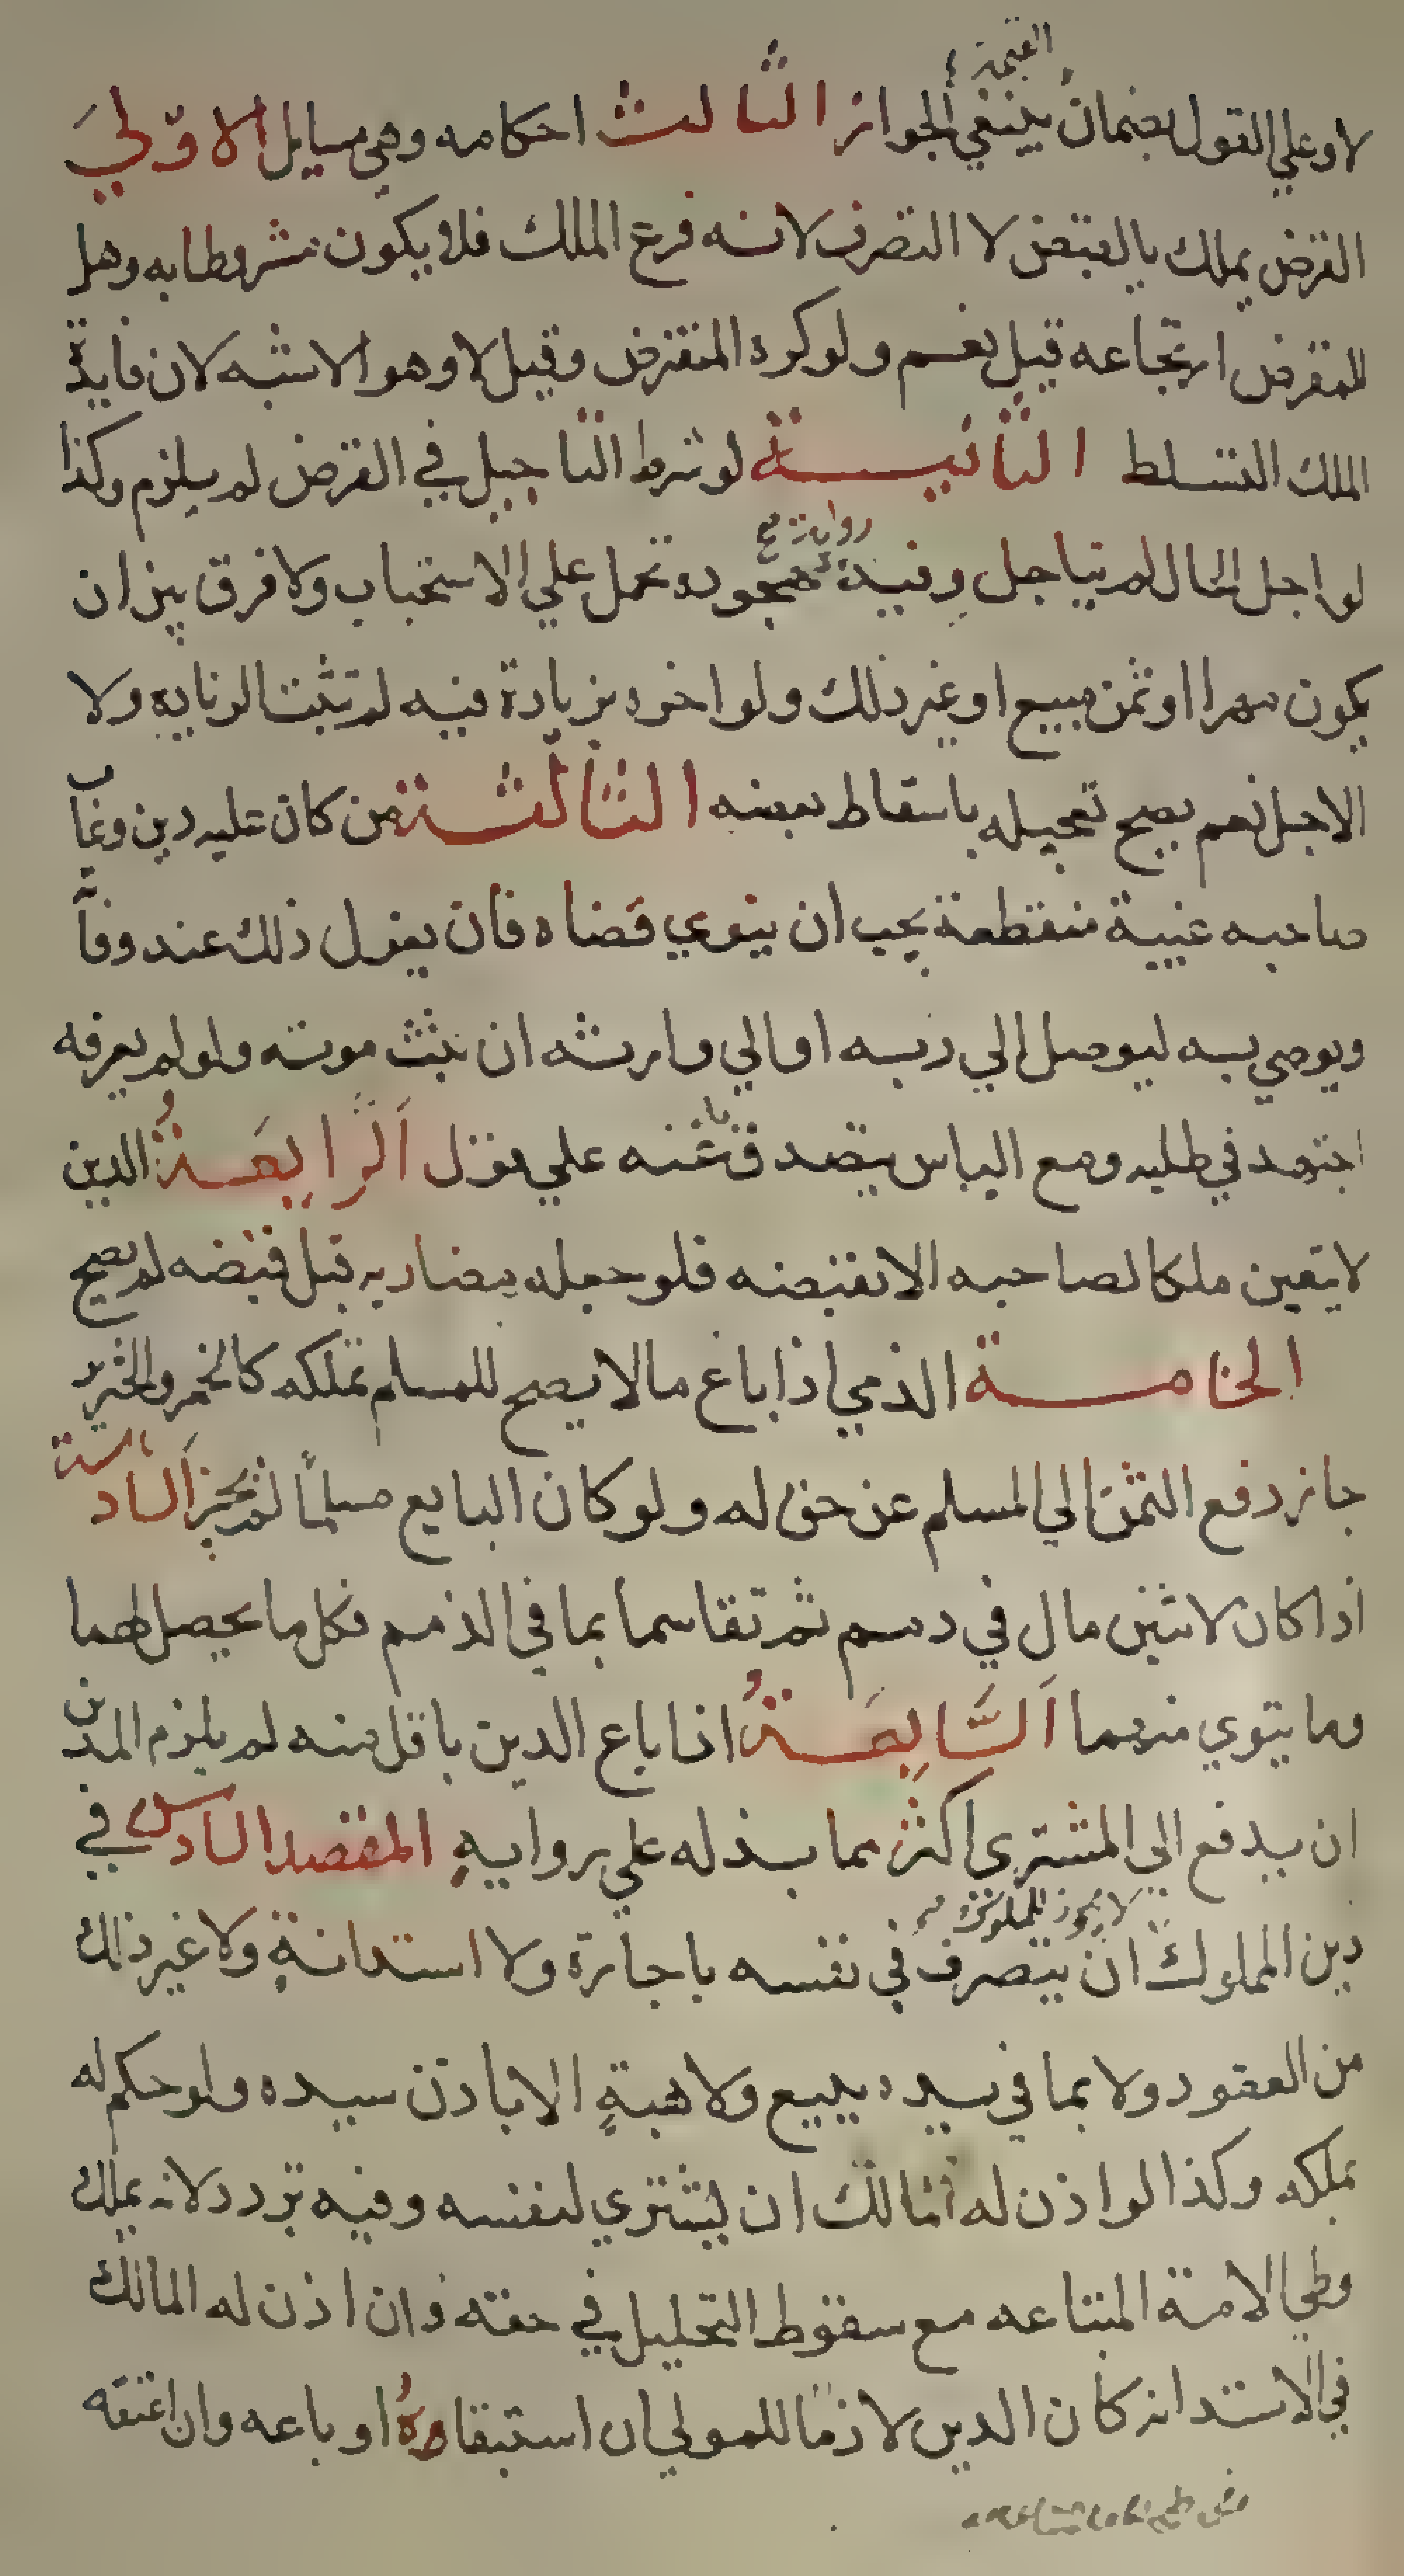 القيمة
لا وعلي القول بضمان ينبغي الجواز الثالث احكامه وهي مسايل الاولي
القرض يملك بالقبض لا التصرف لانه فرع الملك فلا يكون مشروطا به وهل
للمقرض ارتجاعه قيل نعم ولو كره المقترض وقيل لا وهو الاشبه لان فايدة
الملك التسلط الثانيـــة لو شرط التاجيل في القرض لم يلزم وكذا
رواية
لو اجل الحال لم يتاجل وفيه مهجورة تحمل علي الاستحباب ولا فرق بين ان
يكون مهرا او ثمن مبيع او غير ذلك ولو اخره بزيادة فيه لم تثبت الزيادة ولا
الاجل نعم يصح تعجيله باسقاط بعضه الثالثـــة من كان عليه دين وغاب
صاحبه غيبة منقطعة يجب ان ينوي قضاه فان يعزل ذلك عند وفاته
ويوصي بــه ليوصل الي ربــه او الي وارثه ان ثبت موته ولو لم يعرفه
اجتهد في طلبه ومع الياس يتصدق به عنه علي قول اَلرَّابِعَـــةُ الدين
لا يتعين ملكا لصاحبه الا بقبضه فلو جعله مضاربه قبل قبضه لم يصح
الخامســـة الذمي اذا باع ما لا يصح للمسلم تملكه كالخمر والخنزير
جاز دفع الثمن الي المسلم عن حق له ولو كان البايع مسلماً لم يجز السادسة
اذا كان لاثنين مال في ذمــم ثم تقاسما بما في الذمم فكل ما يحصل لهما
وما يتوي منهما اَلسَّابِعَـــةُ اذا باع الدين باقل منه لم يلزم المدين
ان يدفع الي المشتري اكثر مما بــذله علي روايــةٍ المقصد السادس في
لا يجوز للمملوك
دين المملوك ان يتصرف في نفسه باجارة ولا استدانةٍ ولا غير ذلك
من العقود ولا بما في يــده ببيع ولا هبةٍ الا باذن سيده ولو حكم له
بملكه وكذا لو اذن له المالك ان يشتري لنفسه وفيه تردد لانه يملك
وطي الامــة المبتاعه مع سقوط التحليل في حقه فان اذن له المالك
في الاستدانه كان الدين لازما للمولي ان استبقاه او باعه وان اعتقه